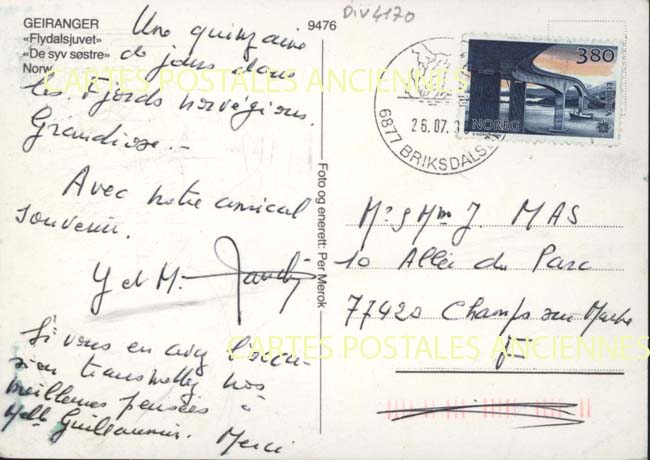 GEIRANGER
«Flydalsjuvet»
«De syv søstre»
Norw
9476
Div4170
Une quinzaine
de jours dans
les Fjords norvégiens.
Grandiose. -
Avec notre amical
souvenir.
Y et M.
Si vous en avez l'occa-
sion transmettez nos
meilleures pensées à
Melle Guillaumin. Merci
Foto og enerett: Per Merok
6877 BRIKSDALS
26.07.
380
NOREG
EUROPA
Mr & Mme J. MAS
10 Allée du Parc
77420 Champs sur Marne
CARTES POSTALES ANCIENNES
CARTES POSTALES ANCIENNES